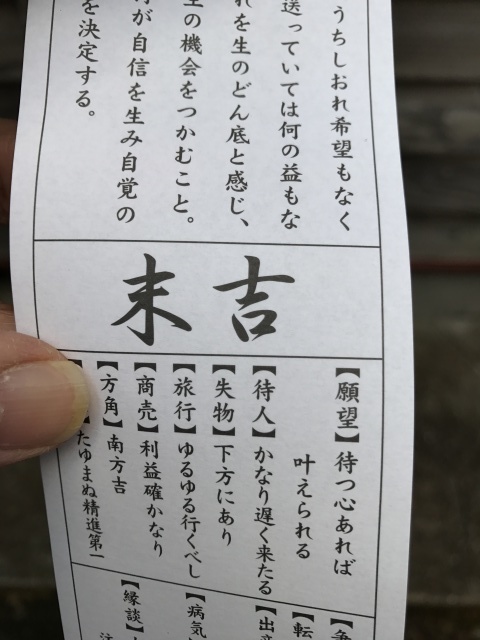 うちしおれ希望もなく
送っていては何の益もな
れを生のどん底と感じ、
の機会をつかむこと。
が自信を生み自覚の
を決定する。
末吉
【願望】待つ心あれば
叶えられる
【待人】かなり遅く来たる
【失物】下方にあり
【旅行】ゆるゆる行くべし
【商売】利益確かなり
【方角】南方吉
たゆまぬ精進第一
【転
【出
【病気
【縁談】